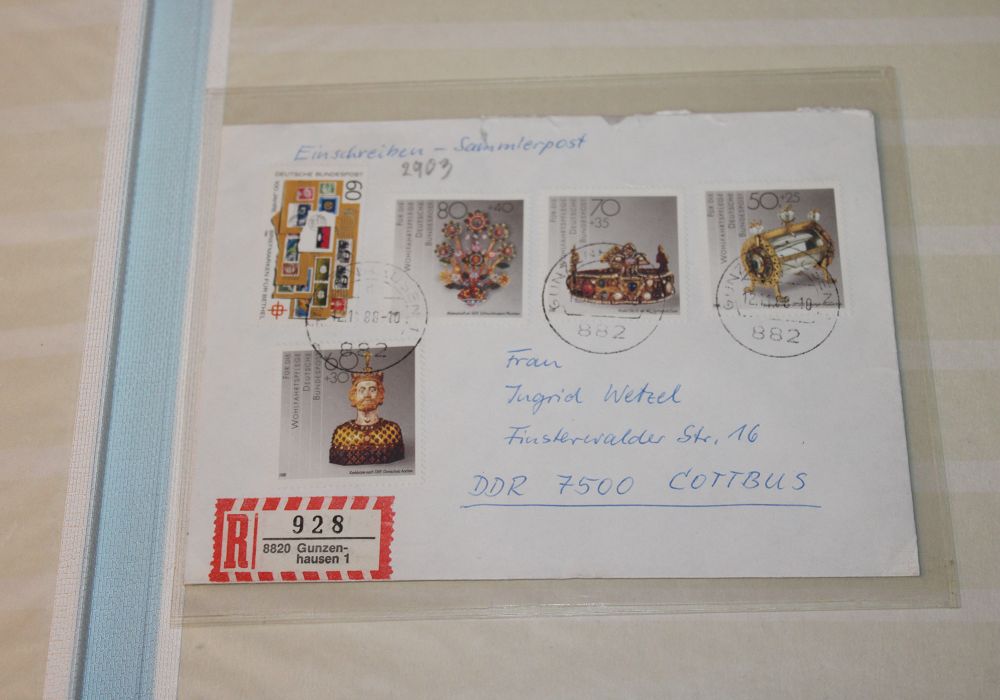 Einschreiben - Sammlerpost
2903
DEUTSCHE BUNDESPOST
60
BRIEFMARKEN FÜR BETHEL
80 +40
FÜR DIE
WOHLFAHRTSPFLEGE
DEUTSCHE
BUNDESPOST
70
+35
FÜR DIE
WOHLFAHRTSPFLEGE
DEUTSCHE
BUNDESPOST
50 +25
FÜR DIE
WOHLFAHRTSPFLEGE
DEUTSCHE
BUNDESPOST
88-10
882
882
GUNZ HAUSEN
88-10
882
60
+30
FÜR DIE
WOHLFAHRTSPFLEGE
DEUTSCHE
BUNDESPOST
Frau
Ingrid Wetzel
Finsterwalder Str. 16
DDR 7500 COTTBUS
R 928
8820 Gunzen-
hausen 1